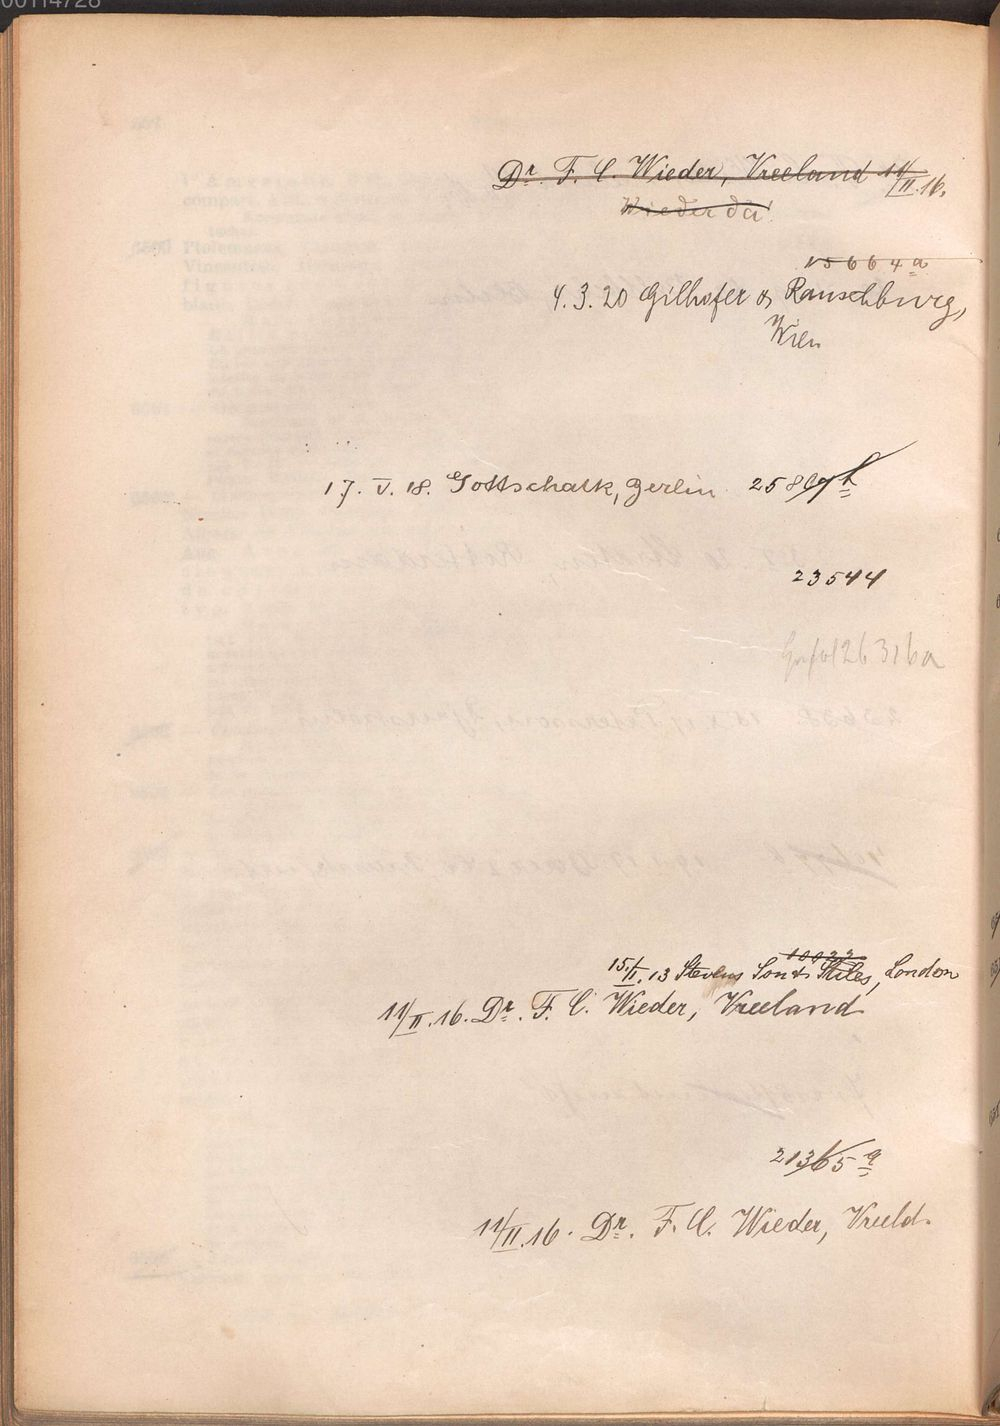 00114728
Dr. F. C. Wieder, Vreeland 11/II.16.
Wieder da!
15664a
4.3.20 Gilhofer & Ranschburg,
Wien
17. V. 18. Gottschalk, Berlin
23544
26316a
10022
15/II.13 Stevens Son & Stiles, London
11/II.16. Dr. F. C. Wieder, Vreeland
21365a
11/II.16. Dr. F. C. Wieder, Vreeld.